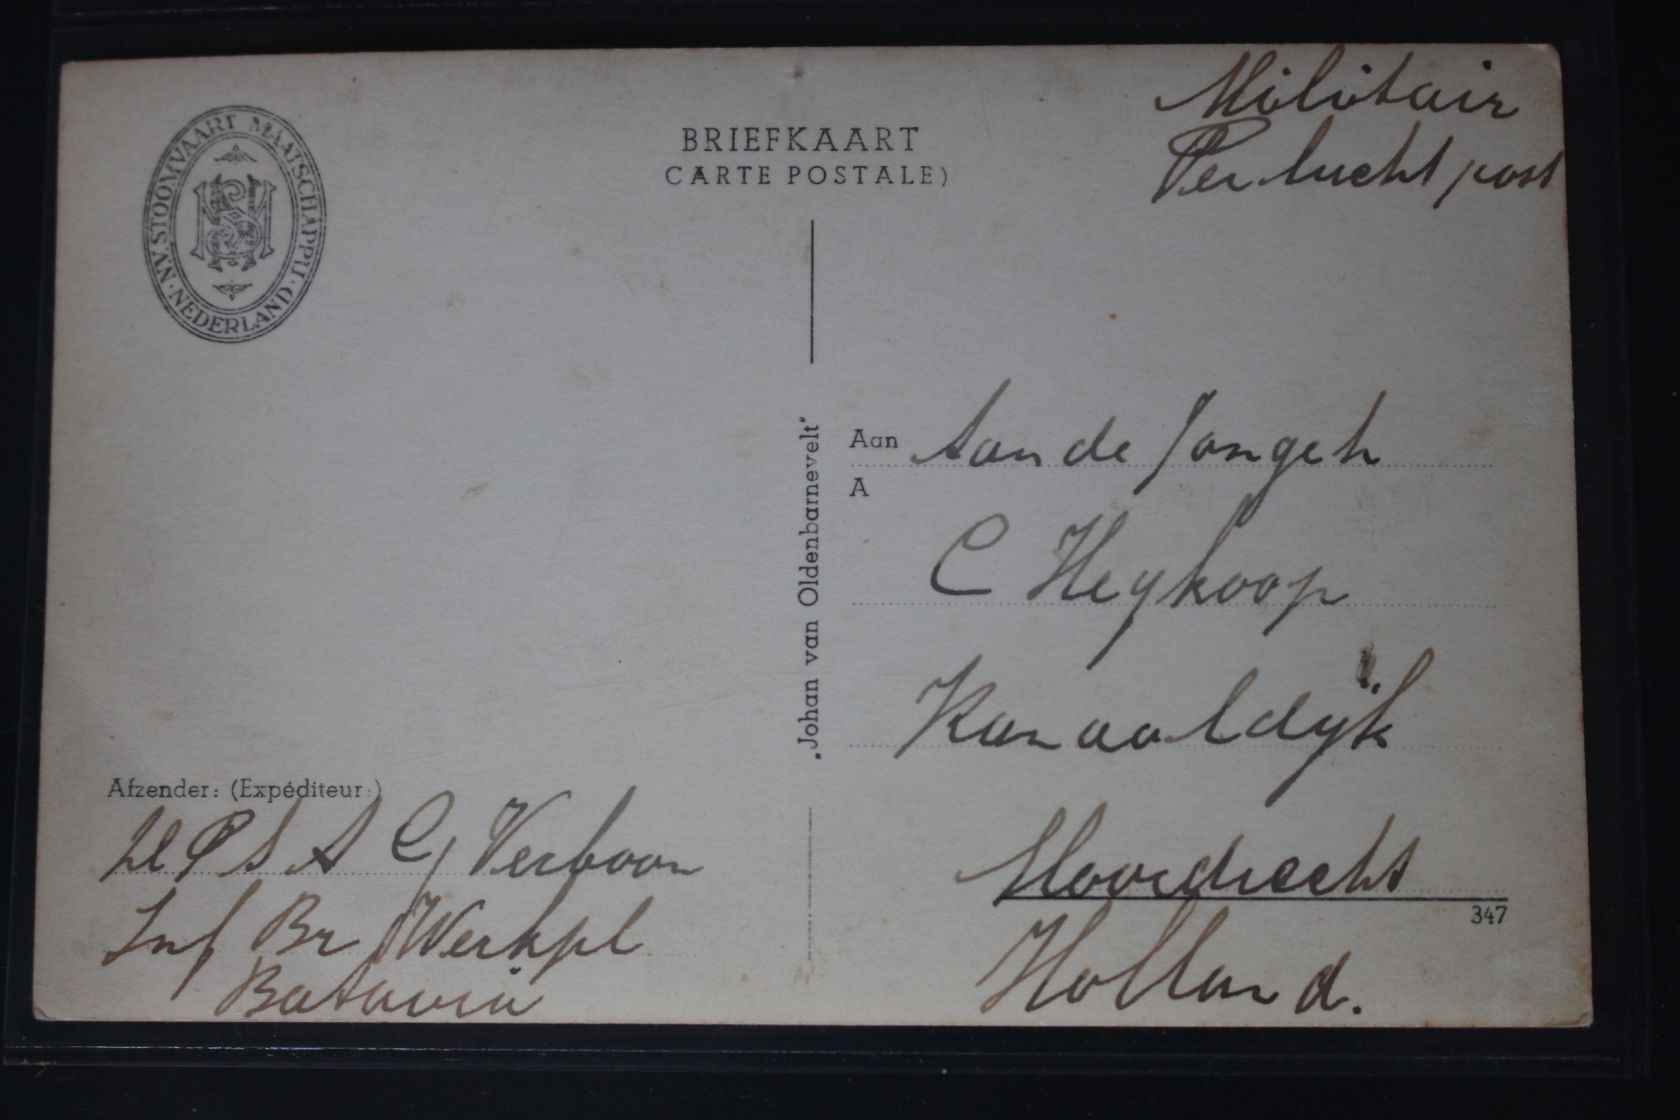 Militair
Per lucht post
N.V. STOOMVAART MAATSCHAPPIJ · NEDERLAND ·
BRIEFKAART
CARTE POSTALE)
„Johan van Oldenbarnevelt"
Aan Aan de Jongeh
A
C Heykoop
Kanaaldijk
Moordrecht
347
Holland.
Afzender: (Expéditeur:)
A C Verboon
Inf Br Werkpl
Batavia